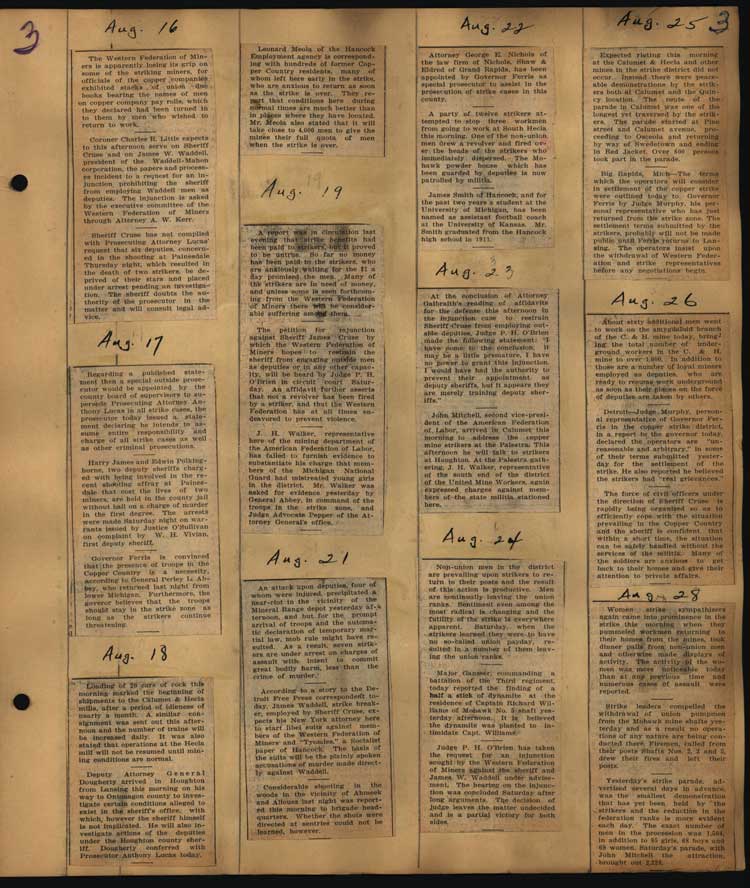 3
Aug. 16
The Western Federation of Min-
ers is apparently losing its grip on
some of the striking miners, for
officials of the copper companies
exhibited stacks of union due
books bearing the names of men
on copper company pay rolls, which
they declared had been turned in
to them by men who wished to
return to work.
Coroner Charles H. Little expects
to this afternoon serve on Sheriff
Cruse and on James W. Waddell,
president of the Waddell-Mahon
corporation, the papers and process-
es incident to a request for an in-
junction prohibiting the sheriff
from employing Waddell men as
deputies. The injunction is asked
by the executive committee of the
Western Federation of Miners
through Attorney A. W. Kerr.
Sheriff Cruse has not complied
with Prosecuting Attorney Lucas'
request that six deputies, concern-
ed in the shooting at Painesdale
Thursday night, which resulted in
the death of two strikers, be de-
prived of their stars and placed
under arrest pending an investiga-
tion. The sheriff doubts the au-
thority of the prosecutor in the
matter and will consult legal ad-
vice.
Aug. 17
Regarding a published state-
ment that a special outside prose-
cutor would be appointed by the
county board of supervisors to su-
persede Prosecuting Attorney An-
thony Lucas in all strike cases, the
prosecutor today issued a state-
ment declaring he intends to as-
sume entire responsibility and
charge of all strike cases as well
as other criminal prosecutions.
Harry James and Edwin Polking-
horne, two deputy sheriffs charg-
ed with being involved in the re-
cent shooting affray at Paines-
dale that cost the lives of two
miners, are held in the county jail
without bail on a charge of murder
in the first degree. The arrests
were made Saturday night on war-
rants issued by Justice O'Sullivan
on complaint by W. H. Vivian,
first deputy sheriff.
Governor Ferris is convinced
that the presence of troops in the
Copper Country is a necessity,
according to General Perley L. Ab-
bey, who returned last night from
lower Michigan. Furthermore, the
governor believes that the troops
should stay in the strike zone as
long as the strikers continue
threatening.
Aug. 18
Loading of 20 cars of rock this
morning marked the beginning of
shipments to the Calumet & Hecla
mills, after a period of idleness of
nearly a month. A similar con-
signment was sent out this after-
noon and the number of trains will
be increased daily. It was also
stated that operations at the Hecla
mill will not be resumed until min-
ing conditions are normal.
Deputy Attorney General
Dougherty arrived in Houghton
from Lansing this morning on his
way to Ontonagon county to inves-
tigate certain conditions alleged to
exist in the sheriff's office, with
which, however the sheriff himself
is not implicated. He will also in-
vestigate actions of the deputies
under the Houghton county sher-
iff. Dougherty conferred with
Prosecutor Anthony Lucas today.
Leonard Meola of the Hancock
Employment agency is correspond-
ing with hundreds of former Cop-
per Country residents, many of
whom left here early in the strike,
who are anxious to return as soon
as the strike is over. They re-
port that conditions here during
normal times are much better than
in places where they have located.
Mr. Meola also stated that it will
take close to 4,000 men to give the
mines their full quota of men
when the strike is over.
Aug. 19
A report was in circulation last
evening that strike benefits had
been paid to strikers, but it proved
to be untrue. So far no money
has been paid to the strikers, who
are anxiously waiting for the $1 a
day promised the men. Many of
the strikers are in need of money,
and unless some is seen forthcom-
ing from the Western Federation
of Miners there will be consider-
able suffering among them.
The petition for injunction
against Sheriff James Cruse by
which the Western Federation of
Miners hopes to restrain the
sheriff from engaging outside men
as deputies or in any other capac-
ity, will be heard by Judge P. H.
O'Brien in circuit court Satur-
day. An affidavit further asserts
that not a revolver has been fired
by a striker, and that the Western
Federation has at all times en-
deavored to prevent violence.
J. H. Walker, representative
here of the mining department of
the American Federation of Labor,
has failed to furnish evidence to
substantiate his charge that mem-
bers of the Michigan National
Guard had mistreated young girls
in the district. Mr. Walker was
asked for evidence yesterday by
General Abbey, in command of the
troops in the strike zone, and
Judge Advocate Pepper of the At-
torney General's office.
Aug. 21
An attack upon deputies, four of
whom were injured, precipitated a
near-riot in the vicinity of the
Mineral Range depot yesterday af-
ternoon, and but for the prompt
arrival of troops and the automa-
tic declaration of temporary mar-
tial law, mob rule might have re-
sulted. As a result, seven strik-
ers are under arrest on charges of
assault with intent to commit
great bodily harm, less than the
crime of murder.
According to a story to the De-
troit Free Press correspondent to-
day, James Waddell, strike break-
er, employed by Sheriff Cruse, ex-
pects his New York attorney here
to start libel suits against mem-
bers of the Western Federation of
Miners and "Tyomies," a Socialist
paper of Hancock. The basis of
the suits will be the plainly spoken
accusations of murder made direct-
ly against Waddell.
Considerable shooting in the
woods in the vicinity of Ahmeek
and Allouez last night was report-
ed this morning to brigade head-
quarters. Whether the shots were
directed at sentries could not be
learned, however.
Aug. 22
Attorney George E. Nichols of
the law firm of Nichols, Shaw &
Eldred of Grand Rapids, has been
appointed by Governor Ferris as
special prosecutor to assist in the
prosecution of strike cases in this
county.
A party of twelve strikers at-
tempted to stop three workmen
from going to work at South Hecla
this morning. One of the non-union
men drew a revolver and fired ov-
er the heads of the strikers who
immediately dispersed. The Mo-
hawk powder house which has
been guarded by deputies is now
patrolled by militia.
James Smith of Hancock, and for
the past two years a student at the
University of Michigan, has been
named as assistant football coach
at the University of Kansas. Mr.
Smith graduated from the Hancock
high school in 1911.
Aug. 23
At the conclusion of Attorney
Galbraith's reading of affidavits
for the defense this afternoon in
the injunction case to restrain
Sheriff Cruse from employing out-
side deputies, Judge P. H. O'Brien
made the following statement: "I
have come to the conclusion, it
may be a little premature, I have
no power to grant this injunction.
I would have had the authority to
prevent their appointment as
deputy sheriffs, but it appears they
are merely training deputy sher-
iffs."
John Mitchell, second vice-presi-
dent of the American Federation
of Labor, arrived in Calumet this
morning to address the copper
mine strikers at the Palestra. This
afternoon he will talk to strikers
at Houghton. At the Palestra gath-
ering, J. H. Walker, representative
of the south end of the district
of the United Mine Workers, again
expressed charges against mem-
bers of the state militia stationed
here.
Aug. 24
Non-union men in the district
are prevailing upon strikers to re-
turn to their posts and the result
of this action is productive. Men
are continually leaving the union
ranks. Sentiment even among the
most radical is changing and the
futility of the strike is everywhere
apparent. Saturday, when the
strikers learned they were to have
no so-called union payday, re-
sulted in a number of them leav-
ing the union ranks.
Major Ganser, commanding a
battalion of the Third regiment,
today reported the finding of a
half a stick of dynamite at the
residence of Captain Richard Wil-
liams of Mohawk No. 5 shaft yes-
terday afternoon. It is believed
the dynamite was planted to in-
timidate Capt. Williams.
Judge P. H. O'Brien has taken
the request for an injunction
sought by the Western Federation
of Miners against the sheriff and
James W. Waddell under advise-
ment. The hearing on the injunc-
tion was concluded Saturday after
long arguments. The decision of
judge leaves the matter undecided
and is a partial victory for both
sides.
Aug. 25
3
Expected rioting this morning
at the Calumet & Hecla and other
mines in the strike district did not
occur. Instead there were peace-
able demonstrations by the strik-
ers both at Calumet and the Quin-
cy location. The route of the
parade in Calumet was one of the
longest yet traversed by the strik-
ers. The parade started at Pine
street and Calumet avenue, pro-
ceeding to Osceola and returning
by way of Swedetown and ending
in Red Jacket. Over 600 persons
took part in the parade.
Big Rapids, Mich—The terms
which the operators will consider
in settlement of the copper strike
were outlined today to Governor
Ferris by Judge Murphy, his per-
sonal representative who has just
returned from the strike zone. The
settlement terms submitted by the
strikers, probably will not be made
public until Ferris returns to Lan-
sing. The operators insist upon
the withdrawal of Western Feder-
ation and strike representatives
before any negotiations begin.
Aug. 26
About sixty additional men went
to work on the amygdaloid branch
of the C. & H. mine today, bring-
ing the total number of under-
ground workers in the C. & H.
mine to over 1,000. In addition to
those are a number of loyal miners
employed as deputies who are
ready to resume work underground
as soon as their places on the force
of deputies are taken by others.
Detroit—Judge Murphy, person-
al representative of Governor Fer-
ris in the copper strike district,
in a report to the governor today,
declared the operators are "un-
reasonable and arbitrary," in some
of their terms submitted yester-
day for the settlement of the
strike. He also reported he believed
the strikers had "real grievances."
The force of civil officers under
the direction of Sheriff Cruse is
rapidly being organized so as to
efficiently cope with the situation
prevailing in the Copper Country
and the sheriff is confident that
within a short time, the situation
can be safely handled without the
services of the militia. Many of
the soldiers are anxious to get
back to their homes and give their
attention to private affairs.
Aug. 28
Women strike sympathizers
again came into prominence in the
strike this morning when they
pummeled workmen returning to
their homes from the mines, took
dinner pails from non-union men
and otherwise made displays of
activity. The activity of the wo-
men was more noticeable today
than at any previous time and
numerous cases of assault were
reported.
Strike leaders compelled the
withdrawal of union pumpmen
from the Mohawk mine shafts yes-
terday and as a result no opera-
tions of any nature are being con-
ducted there. Firemen, called from
their posts Shafts Nos. 2, 3 and 5,
drew their fires and left their
posts.
Yesterday's strike parade, ad-
vertised several days in advance,
was the smallest demonstration
that has yet been held by the
strikers and the reduction in the
federation ranks is more evident
each day. The exact number of
men in the procession was 1,504,
in addition to 95 girls, 68 boys and
69 women. Saturday's parade, with
John Mitchell the attraction,
brought out 2,228.